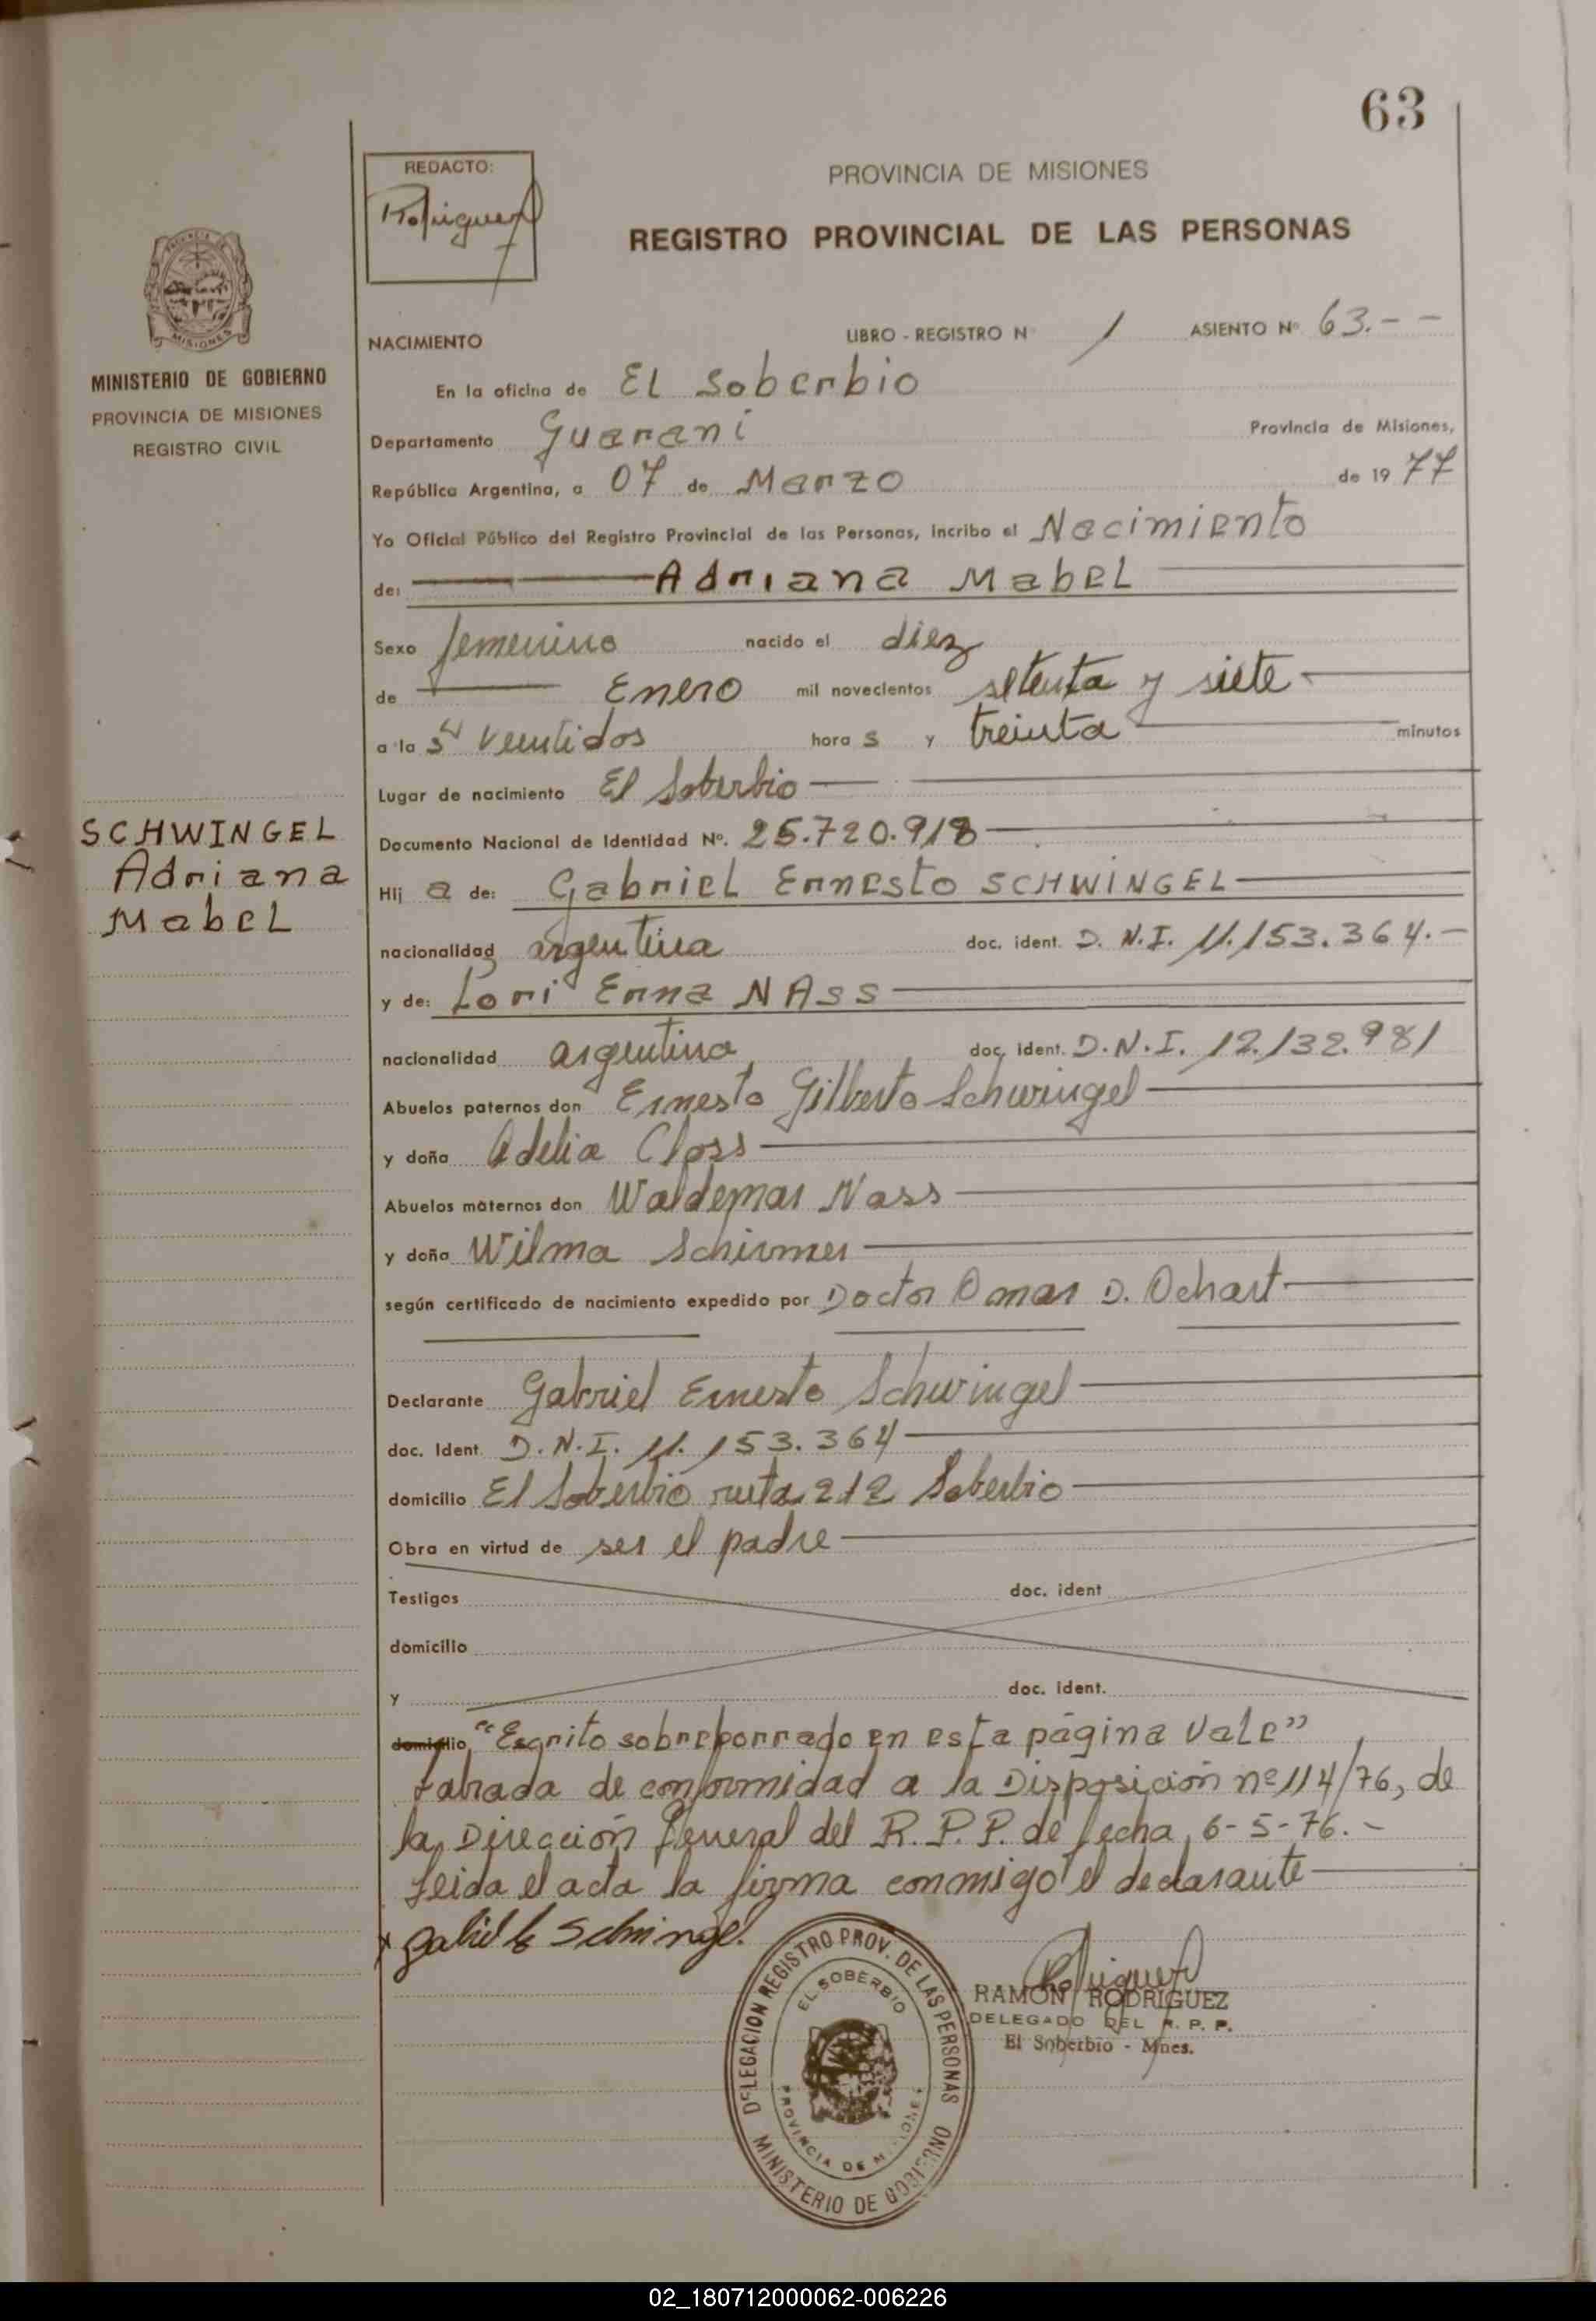 63
REDACTO:
Rodriguez
PROVINCIA DE MISIONES
REGISTRO PROVINCIAL DE LAS PERSONAS
MISIONES
MINISTERIO DE GOBIERNO
PROVINCIA DE MISIONES
REGISTRO CIVIL
NACIMIENTO LIBRO - REGISTRO Nº 1 ASIENTO Nº 63.- -
En la oficina de El Soberbio
Departamento Guaraní Provincia de Misiones,
República Argentina, a 07 de Marzo de 1977
Yo Oficial Público del Registro Provincial de las Personas, incribo el Nacimiento
de: Adriana Mabel
Sexo femenino nacido el diez
de Enero mil novecientos setenta y siete
a la s veintidos hora s y treinta minutos
Lugar de nacimiento El Soberbio
SCHWINGEL
Adriana
Mabel
Documento Nacional de Identidad Nº. 25.720.918
Hij a de: Gabriel Ernesto SCHWINGEL
nacionalidad argentina doc. ident. D.N.I. 11.153.364.-
y de: Lori Erna NASS
nacionalidad argentina doc. ident. D.N.I. 12.132.981
Abuelos paternos don Ernesto Gilberto Schwingel
y doña Adelia Closs
Abuelos maternos don Waldemar Nass
y doña Wilma Schirmer
según certificado de nacimiento expedido por Doctor Omar D. Ochart
Declarante Gabriel Ernesto Schwingel
doc. Ident. D.N.I. 11.153.364
domicilio El Soberbio ruta 212 Soberbio
Obra en virtud de ser el padre
Testigos doc. ident
domicilio
y doc. ident.
domicilio "Escrito sobreborrado en esta página Vale"
Labrada de conformidad a la Disposición nº 114/76, de
la Dirección General del R.P.P. de fecha 6-5-76.-
Leida el acta la firma conmigo el declarante
x Gabriel E Schwingel.
Rodriguez
RAMON RODRIGUEZ
DELEGADO DEL R. P. P.
El Soberbio - Mnes.
DELEGACION REGISTRO PROV. DE LAS PERSONAS
MINISTERIO DE GOBIERNO
EL SOBERBIO
PROVINCIA DE MISIONES
02_180712000062-006226